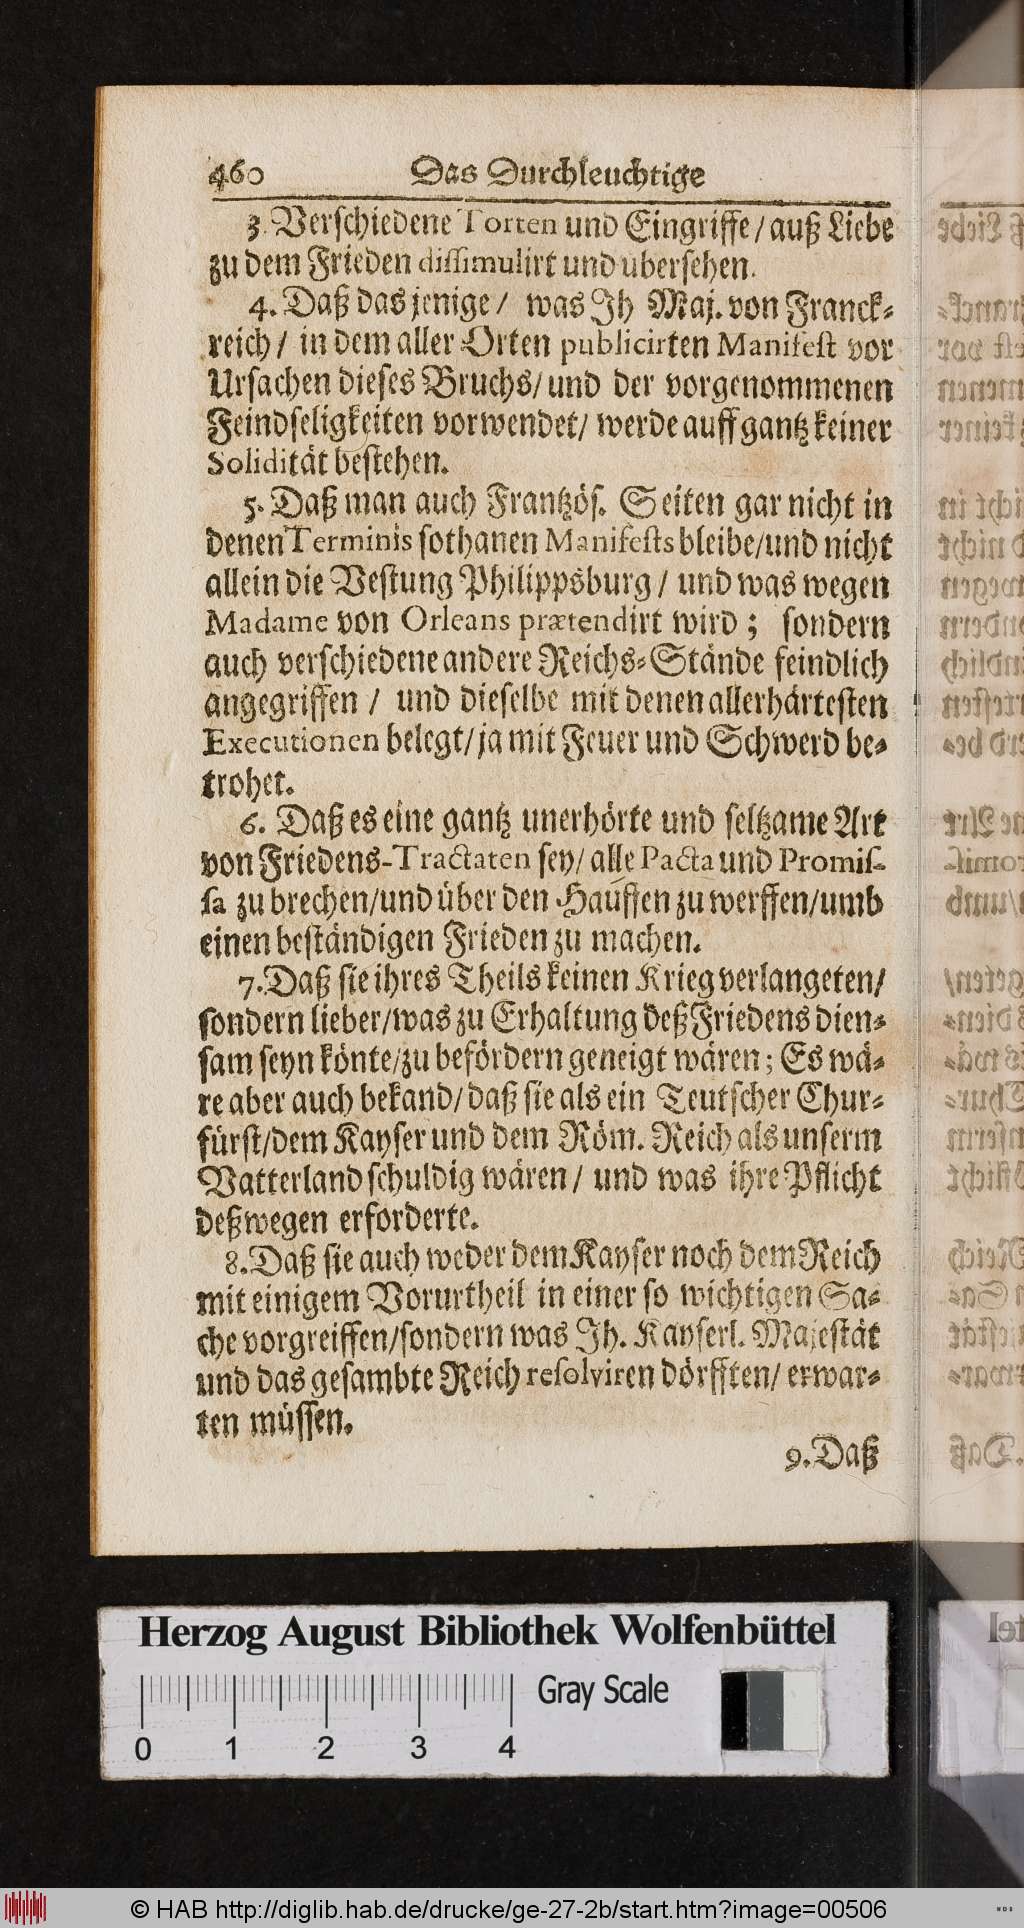 460 Das Durchleuchtige
3. Verschiedene Torten und Eingriffe / auß Liebe
zu dem Frieden dissimulirt und ubersehen.
4. Daß das jenige / was Ih Maj. von Franck-
reich / in dem aller Orten publicirten Manifest vor
Ursachen dieses Bruchs / und der vorgenommenen
Feindseligkeiten vorwendet / werde auff gantz keiner
Solidität bestehen.
5. Daß man auch Frantzös. Seiten gar nicht in
denen Terminis sothanen Manifests bleibe / und nicht
allein die Vestung Philippsburg / und was wegen
Madame von Orleans prætendirt wird; sondern
auch verschiedene andere Reichs-Stände feindlich
angegriffen / und dieselbe mit denen allerhärtesten
Executionen belegt / ja mit Feuer und Schwerd be-
trohet.
6. Daß es eine gantz unerhörte und seltzame Art
von Friedens-Tractaten sey / alle Pacta und Promis-
sa zu brechen / und über den Hauffen zu werffen / umb
einen beständigen Frieden zu machen.
7. Daß sie ihres Theils keinen Krieg verlangeten /
sondern lieber / was zu Erhaltung deß Friedens dien-
sam seyn könte / zu befördern geneigt wären; Es wä-
re aber auch bekand / daß sie als ein Teutscher Chur-
fürst / dem Kayser und dem Röm. Reich als unserm
Vatterland schuldig wären / und was ihre Pflicht
deßwegen erforderte.
8. Daß sie auch weder dem Kayser noch dem Reich
mit einigem Vorurtheil in einer so wichtigen Sa-
che vorgreiffen / sondern was Ih. Kayserl. Majestät
und das gesambte Reich resolviren dörfften / erwar-
ten müssen.
9. Daß
Herzog August Bibliothek Wolfenbüttel
Gray Scale
0 1 2 3 4
© HAB http://diglib.hab.de/drucke/ge-27-2b/start.htm?image=00506